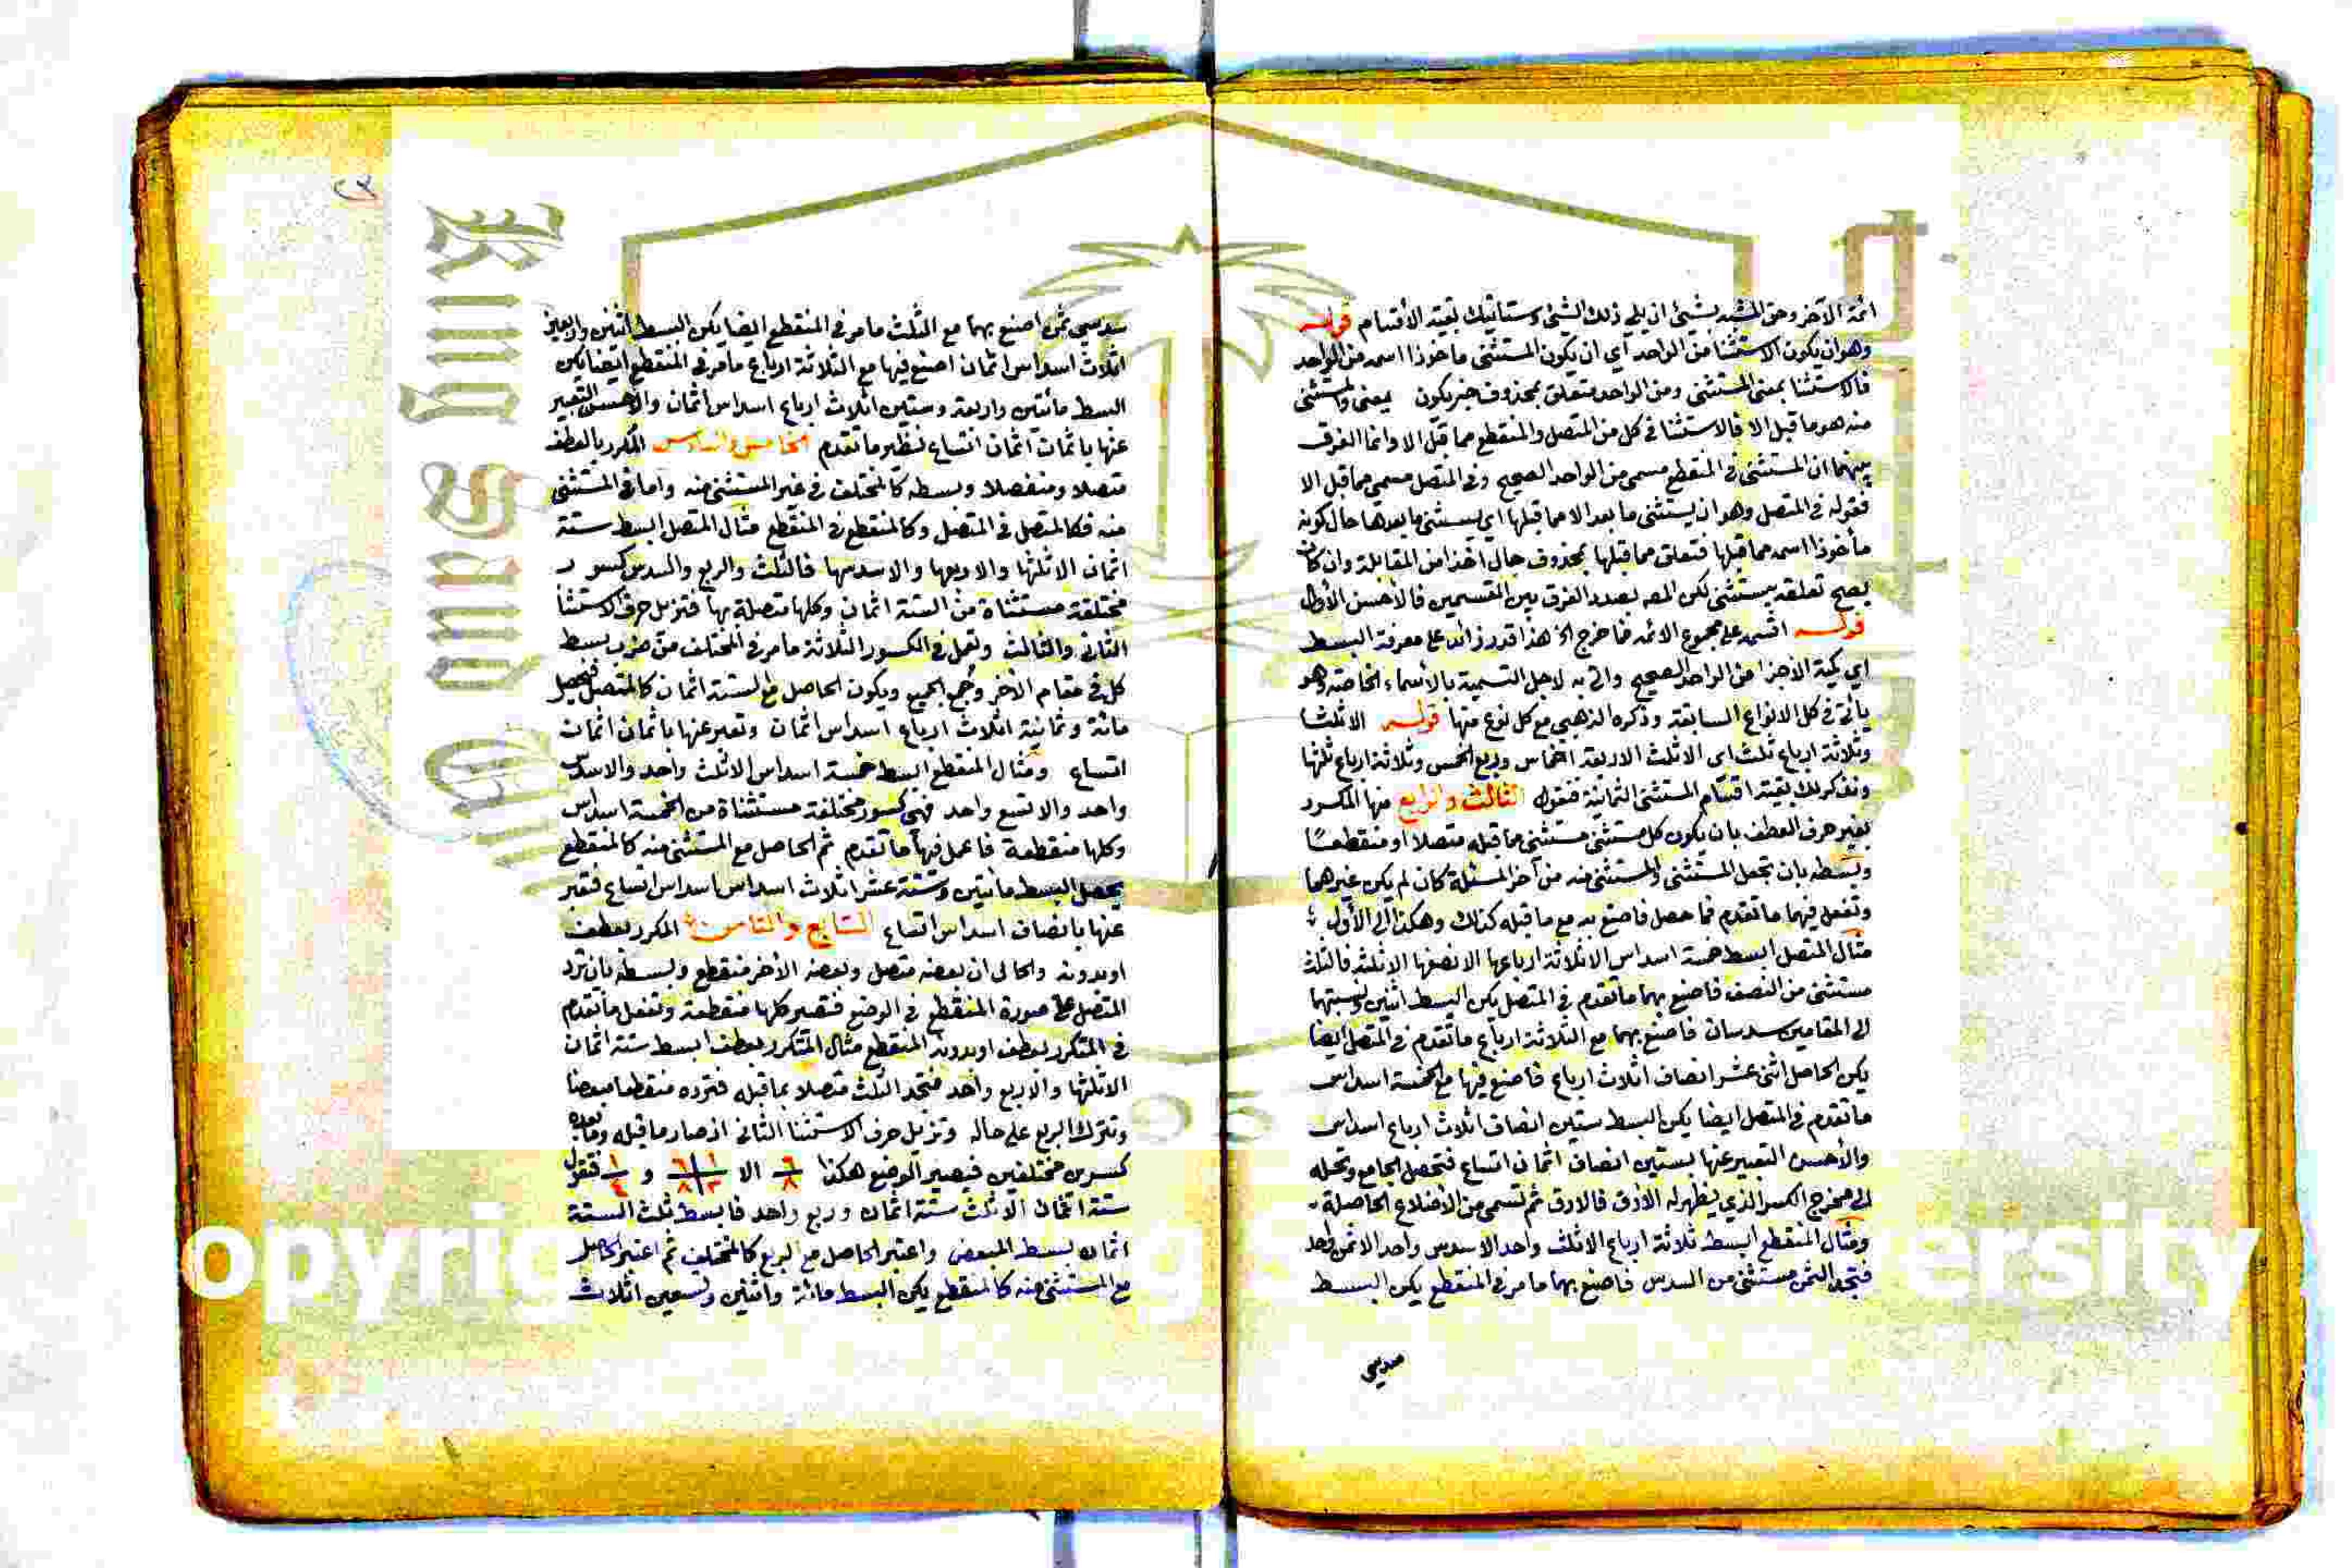 ائمة الآخر وحق المشبه بشئ ان يلي ذلك الشئ وستأتيك بقية الأقسام قوله
وهو ان يكون الاستثنا من الواحد اي ان يكون المستثنى ماخوذا اسمه من الواحد
فالاستثنا بمعنى المستثنى ومن الواحد متعلق بمحذوف خبر يكون بمعنى والمستثنى
منه هو ما قبل الا فالاستثنا في كل من المتصل والمنقطع مما قبل الا وانما الفرق
بينهما ان المستثنى في المنقطع مسمى من الواحد الصحيح وفي المتصل مسمى مما قبل الا
فقوله في المتصل وهو ان يستثنى ما بعد الا مما قبلها اي يستثنى ما بعدها حال كونه
مأخوذا اسمه مما قبلها فتعلق مما قبلها بمحذوف حال اخذا من المقابلة وان كان
يصح تعلقه بيستثنى لكن المص بصدد الفرق بين القسمين فالأحسن الأول
قوله اقسمه على مجموع الائمه فما خرج الخ هذا قدر زائد على معرفة البسط
اي كمية الأجزا من الواحد الصحيح واتى به لاجل التسمية بالأسماء الخاصة وهو
يأتي في كل الانواع السابقة وذكره الذهبي مع كل نوع منها قوله الا ثلثا
وثلاثة ارباع ثلث اى الا ثلث الاربعة اخماس وربع الخمس وثلاثة ارباع ثلثها
ونذكر لك بقية اقسام المستثنى الثمانية فنقول الثالث والرابع منها المكرر
بغير حرف العطف بان يكون كل مستثنى مستثنى مما قبله متصلا او منقطعًا
وبسطه بان تجعل المستثنى والمستثنى منه من آخر المسئلة كان لم يكن غيرهما
وتفعل فيهما ما تقدم فما حصل فاصنع به مع ما قبله كذلك وهكذا الى الأول
مثال المتصل ابسط خمسة اسداس الا ثلاثة ارباعها الا نصفها الا ثلثه فالثلث
مستثنى من النصف فاصنع بهما ما تقدم في المتصل يكن البسط اثنين ونسبتهما
الى المقامين سدسان فاصنع بهما مع الثلاثة ارباع ما تقدم في المتصل ايضا
يكن الحاصل اثنى عشر انصاف اثلاث ارباع فاصنع فيها مع الخمسة اسداس
ما تقدم في المتصل ايضا يكن البسط ستين انصاف اثلاث ارباع اسداس
والأحسن التعبير عنها بستين انصاف اثمان اتساع فتحصل الجامع وتحله
الى مخرج الكسر الذي يظهر له الأدق فالادق ثم تسمى من الأضلاع الحاصلة
ومثال المنقطع ابسط ثلاثة ارباع الا ثلث واحد الا سدس واحد الا ثمن واحد
فتجد الثمن مستثنى من السدس فاصنع بهما ما مر في المنقطع يكن البسط
سدسي
سدسي ثمن اصنع بهما مع الثلث ما مر في المنقطع ايضا يكن البسط اثنين واربعين
اثلاث اسداس اثمان اصنع فيها مع الثلاثة ارباع ما مر في المنقطع ايضا يكن
البسط مأتين واربعة وستين اثلاث ارباع اسداس اثمان والأحسن التعبير
عنها باثمان اثمان اتساع نظير ما تقدم الخامس والسادس المكرر بالعطف
متصلا ومنفصلا وبسطه كالمختلف في غير المستثنى منه واما في المستثنى
منه فكالمتصل في المتصل وكالمنقطع في المنقطع مثال المتصل ابسط ستة
اثمان الا ثلثها والا ربعها والا سدسها فالثلث والربع والسدس كسور
مختلفة مستثناة من الستة اثمان وكلها متصلة بها فتزيل حرف الاستثنا
الثاني والثالث وتعمل في الكسور الثلاثة ما مر في المختلف من ضرب بسط
كل في مقام الآخر وجمع الجميع ويكون الحاصل مع الستة اثمان كالمتصل فيحصل
مائة وثمانية اثلاث ارباع اسداس اثمان وتعبر عنها باثمان اثمان
اتساع ومثال المنقطع ابسط خمسة اسداس الا ثلث واحد والا سدس
واحد والا تسع واحد فهى كسور مختلفة مستثناة من الخمسة اسداس
وكلها منقطعة فاعمل فيها ما تقدم ثم الحاصل مع المستثنى منه كالمنقطع
يحصل البسط مأتين وستة عشر اثلاث اسداس اسداس اتساع فتعبر
عنها بانصاف اسداس اتساع السابع والثامن المكرر بعطف
او بدونه والحال ان بعضه متصل وبعضه الآخر منقطع وبسطه بان ترد
المتصل على صورة المنقطع في الوضع فتصير كلها منقطعة وتفعل ما تقدم
في المتكرر بعطف او بدونه المنقطع مثال المتكرر بعطف ابسط ستة اثمان
الا ثلثها والا ربع واحد فتجد الثلث متصلا بما قبله فترده منقطعا مبعضا
وتترك الربع على حاله وتزيل حرف الاستثنا الثاني اذ صار ما قبله وما بعده
كسرين مختلفين فيصير الوضع هكذا ٦/٨ الا ١/٣ ٦/٨ و ١/٤ فتقول
ستة اثمان الا ثلث ستة اثمان وربع واحد فابسط ثلث الستة
اثمان بسط المبعض واعتبر الحاصل مع الربع كالمختلف ثم اعتبر الحاصل
مع المستثنى منه كالمنقطع يكن البسط مائة واثنين وتسعين اثلاث